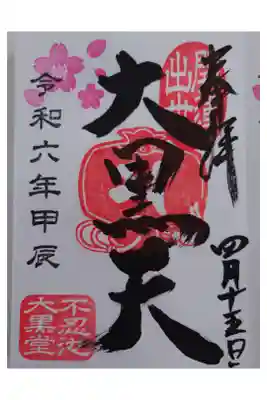 奉拝
四月十五日
大黒天
令和六年甲辰
不忍池
大黒堂